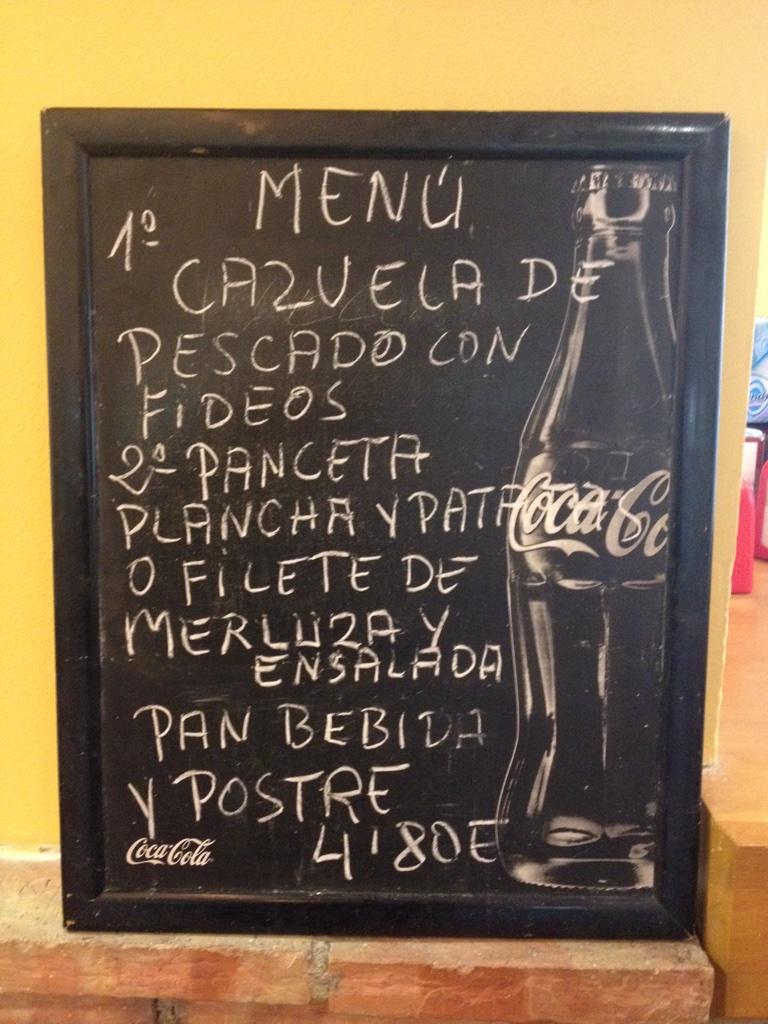 MENÚ
1º
CAZUELA DE
PESCADO CON
FIDEOS
2º PANCETA
PLANCHA Y PATATAS
O FILETE DE
MERLUZA Y
ENSALADA
PAN BEBIDA
Y POSTRE
4'80E
Coca-Cola
Coca-Co